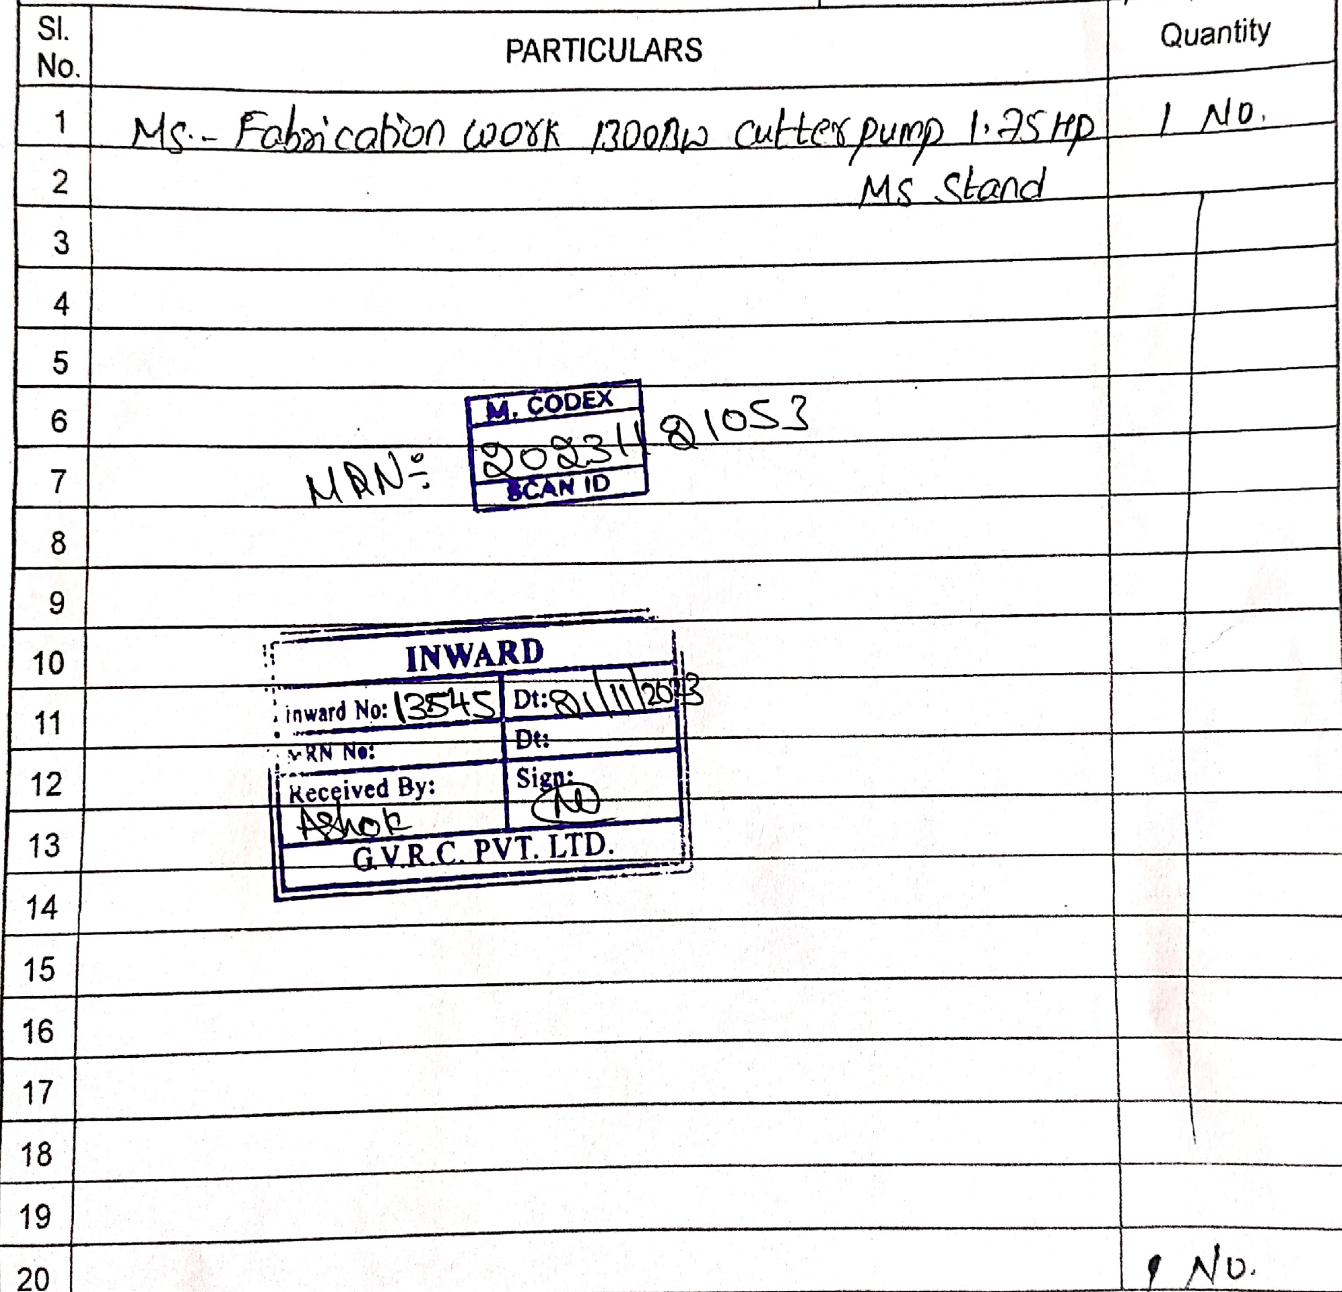 Sl. No. PARTICULARS Quantity
1 Ms.- Fabrication work 1300BW cutter pump 1.25 HP 1 No.
2 Ms Stand
3
4
5
M. CODEX
6
MRN:- 20231121053
7
SCAN ID
8
9
10 INWARD
11 Inward No: 13545 Dt: 21/11/2023
MRN No: Dt:
12 Received By: Sign:
Ashok
13 G.V.R.C. PVT. LTD.
14
15
16
17
18
19
20 1 No.